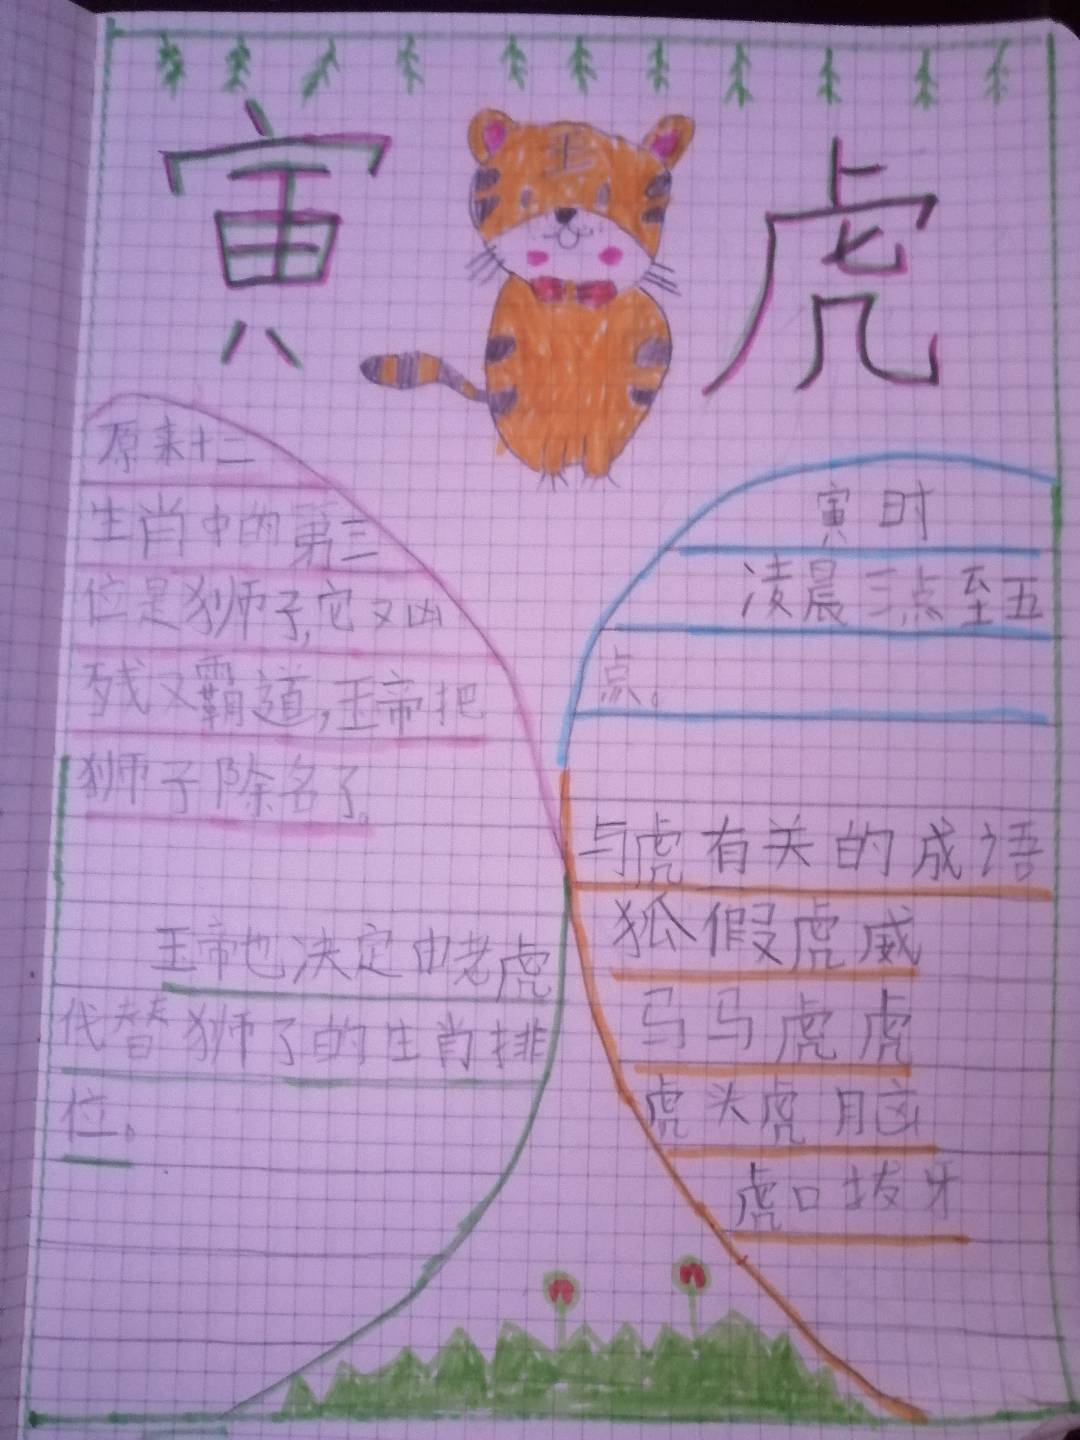 寅虎
王
原来十二
生肖中的第三
位是狮子,它又凶
残又霸道,玉帝把
狮子除名了。
玉帝也决定由老虎
代替狮子的生肖排
位。
寅时
凌晨三点至五
点。
与虎有关的成语
狐假虎威
马马虎虎
虎头虎脑
虎口拔牙